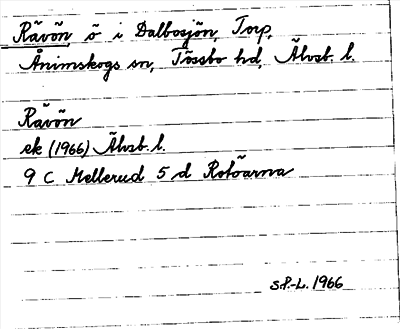 Rävön ö i Dalbosjön, Torp,
Ånimskogs sn, Tössbo hd, Älvsb. l.
Rävön
ek (1966) Älvsb. l.
9 C Mellerud 5 d Rotöarna
SP.-L. 1966